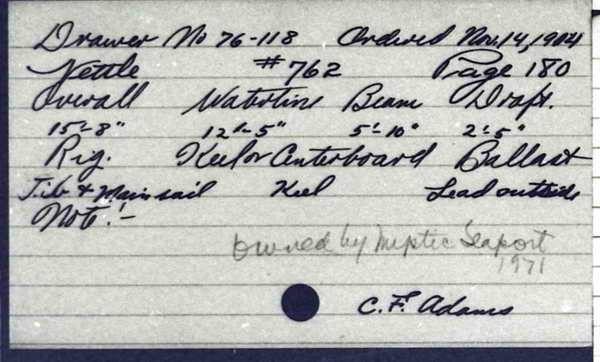 Drawer No 76-118 Ordered Nov. 14, 1904
Nettle #762 Page 180
Overall Waterline Beam Draft.
15'-8" 12'-5" 5'-10" 2'-5"
Rig. Keel or Centerboard Ballast
Jib & Mainsail Keel Lead outside
Note:-
owned by Myptic Seaport
1971
C. F. Adams